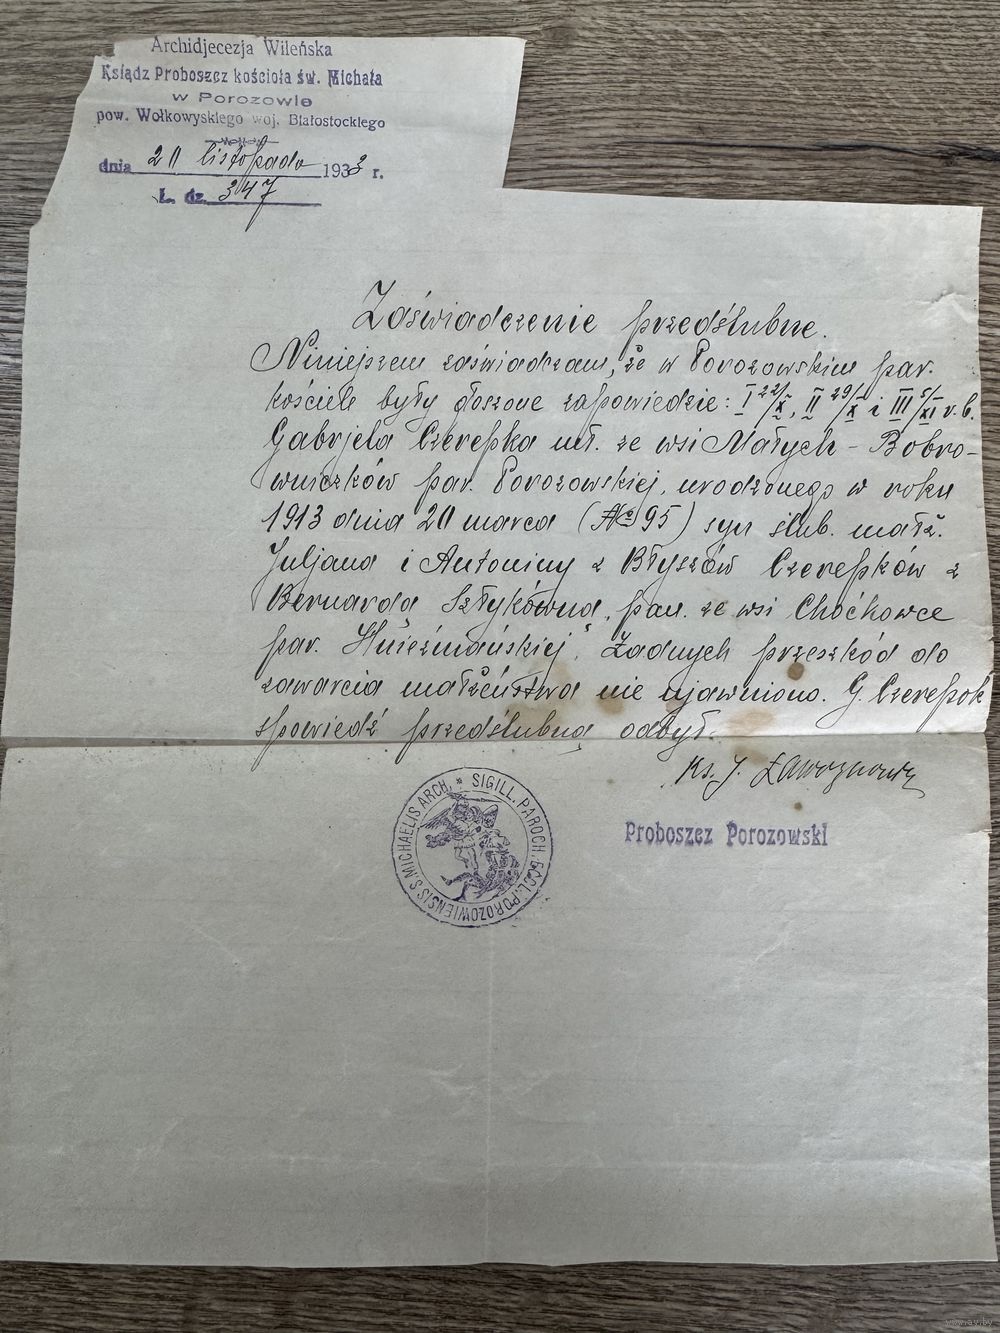 Archidjecezja Wileńska
Ksiądz Proboszcz kościoła św. Michała
w Porozowie
pow. Wołkowyskiego woj. Białostockiego
dnia 20 listopada 1933 r.
L. dz. 347
Zaświadczenie przedślubne.
Niniejszem zaświadczam, że w Porozowskim par.
kościele były głoszone zapowiedzie: I 22/X, II 29/X i III 5/XI r.b.
Gabrjela Czerepka mł. ze wsi Małych - Bobro-
wniczków par. Porozowskiej, urodzonego w roku
1913 dnia 20 marca (№ 95) syn ślub. małż.
Juljana i Antoniny z Błyszów Czerepków z
Bernardą Sztykówną, pan. ze wsi Choćkowce
par. Hnieźnańskiej. Żadnych przeszkód do
zawarcia małżeństwa nie ujawniono. G. Czerepok
spowiedź przedślubną odbył.
Ks. J.
Proboszcz Porozowski
SIGILL. PAROCH. ECCL. POROZOWIENSIS S. MICHAELIS ARCH. *
www.av.by